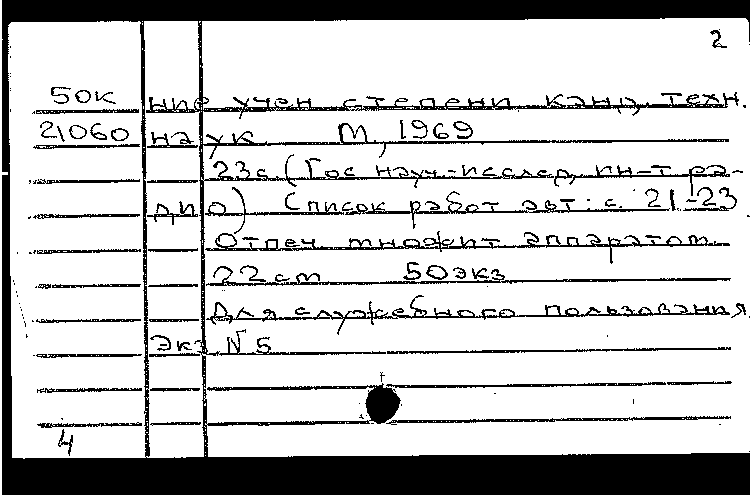 2
50К ние учен степени канд, техн.
21060 наук М, 1969
23с. (Гос науч.-исслед, ин-т ра-
дио) Список работ авт: с. 21-23
Отпеч множит аппаратом
22см 50экз
Для служебного пользования
Экз. N 5
4